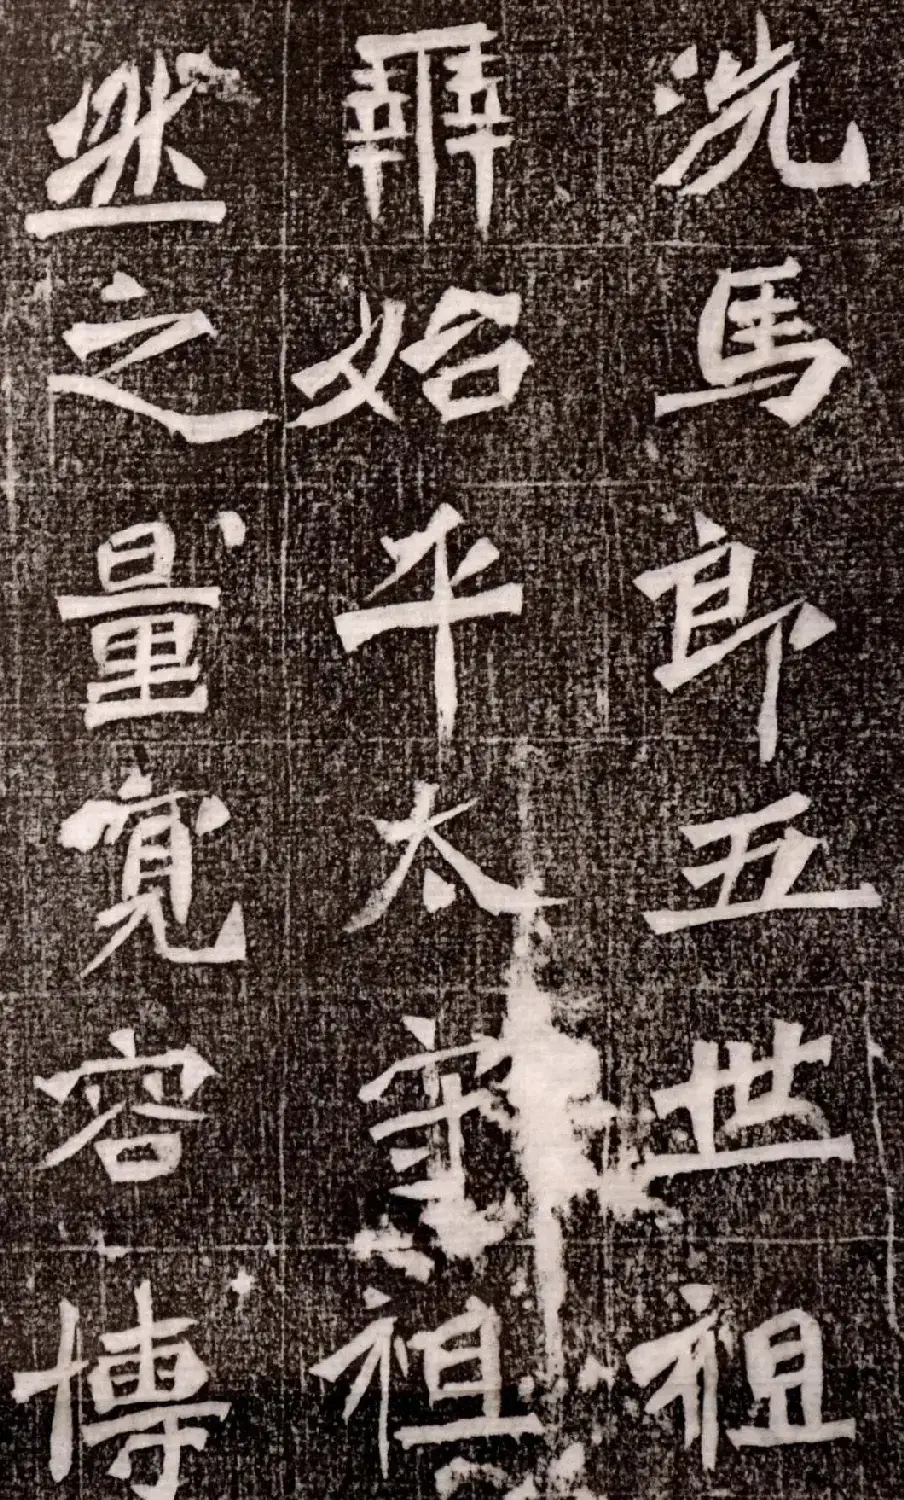 洗馬郎五世祖
始平太祖
然之量寬容博